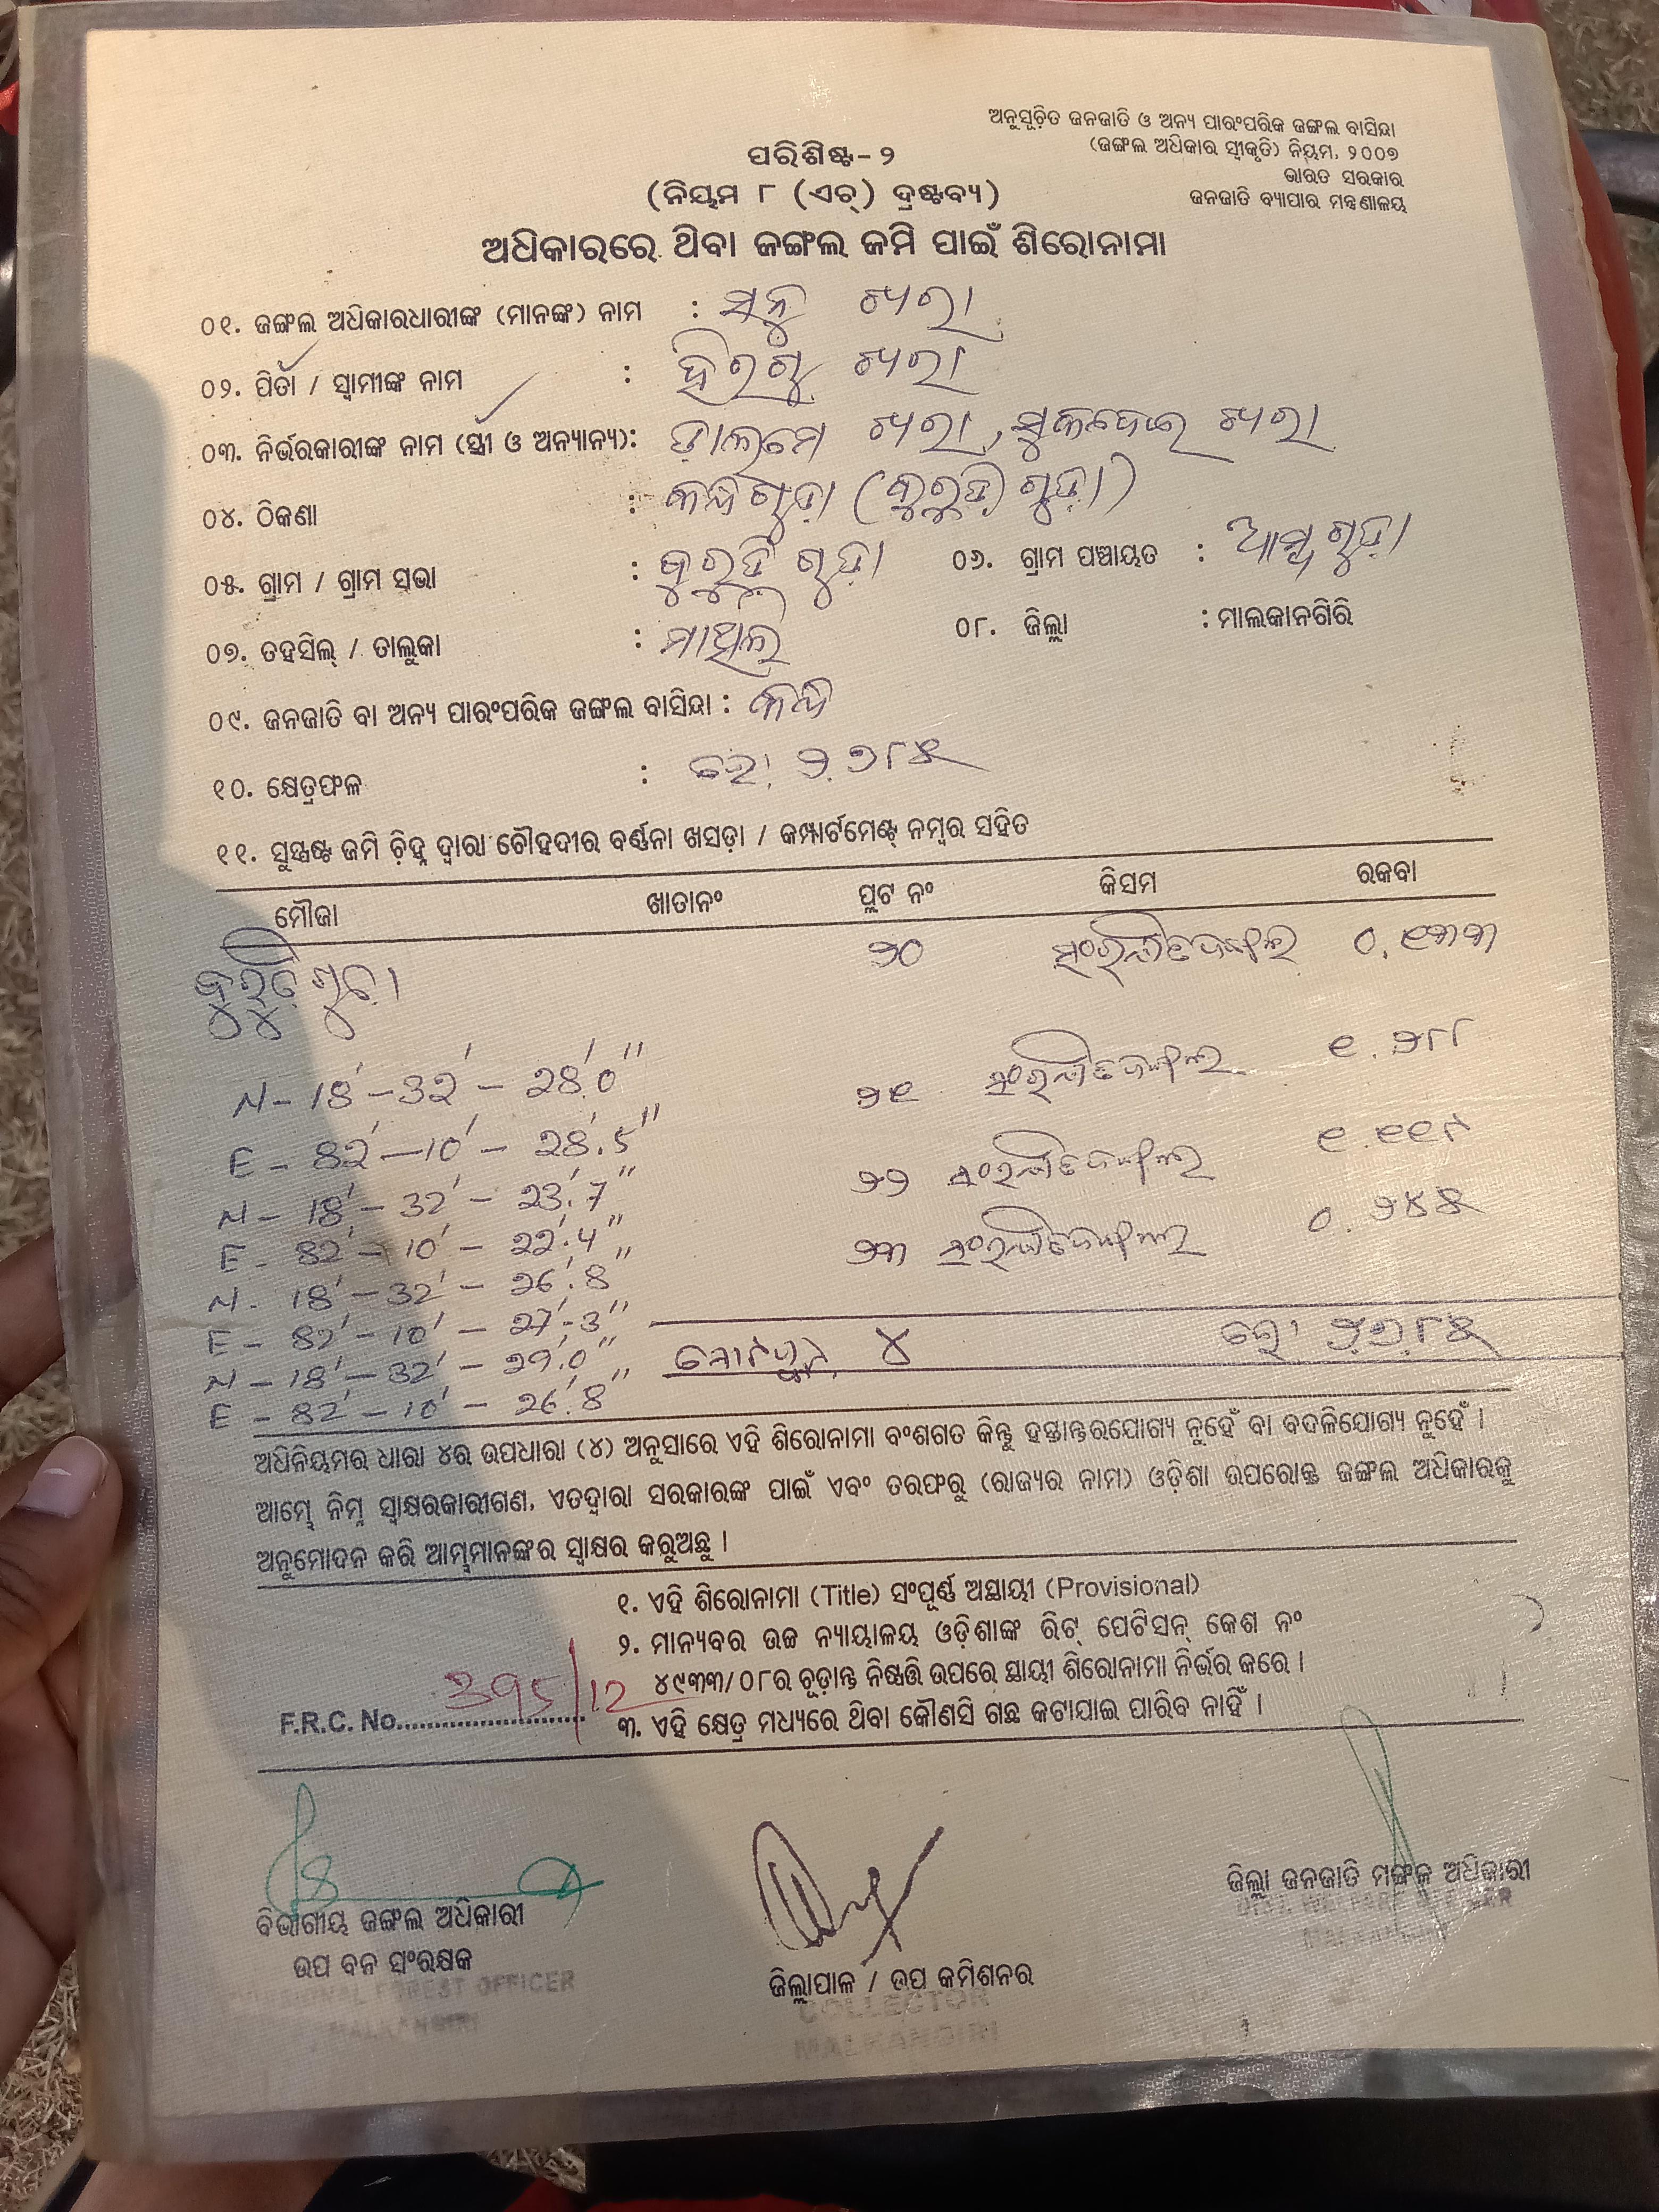 ଅନୁସୂଚିତ ଜନଜାତି ଓ ଅନ୍ୟ ପାରଂପରିକ ଜଙ୍ଗଲ ବାସିନ୍ଦା
(ଜଙ୍ଗଲ ଅଧିକାର ସ୍ୱୀକୃତି) ନିୟମ, ୨୦୦୭
ଭାରତ ସରକାର
ଜନଜାତି ବ୍ୟାପାର ମନ୍ତ୍ରଣାଳୟ
ପରିଶିଷ୍ଟ-୨
(ନିୟମ ୮ (ଏଚ୍) ଦ୍ରଷ୍ଟବ୍ୟ)
ଅଧିକାରରେ ଥିବା ଜଙ୍ଗଲ ଜମି ପାଇଁ ଶିରୋନାମା
୦୧. ଜଙ୍ଗଲ ଅଧିକାରଧାରୀଙ୍କ (ମାନଙ୍କ) ନାମ :
୦୨. ପିତା / ସ୍ୱାମୀଙ୍କ ନାମ :
୦୩. ନିର୍ଭରକାରୀଙ୍କ ନାମ (ସ୍ତ୍ରୀ ଓ ଅନ୍ୟାନ୍ୟ):
୦୪. ଠିକଣା :
୦୫. ଗ୍ରାମ / ଗ୍ରାମ ସଭା : ୦୬. ଗ୍ରାମ ପଞ୍ଚାୟତ : ଆମ୍ବଗୁଡ଼ା
୦୭. ତହସିଲ୍ / ତାଲୁକା : ମାଥିଲି ୦୮. ଜିଲ୍ଲା : ମାଲକାନଗିରି
୦୯. ଜନଜାତି ବା ଅନ୍ୟ ପାରଂପରିକ ଜଙ୍ଗଲ ବାସିନ୍ଦା : କନ୍ଧ
୧୦. କ୍ଷେତ୍ରଫଳ :
୧୧. ସୁସ୍ପଷ୍ଟ ଜମି ଚିହ୍ନ ଦ୍ୱାରା ଚୌହଦୀର ବର୍ଣ୍ଣନା ଖସଡ଼ା / କମ୍ପାର୍ଟମେଣ୍ଟ୍ ନମ୍ବର ସହିତ
ମୌଜା ଖାତାନଂ ପ୍ଲଟ ନଂ କିସମ ରକବା
୨୦ ୦.୧୩୩
N-18'-32'-28'.0" ୨୧ ୧.୨୮୮
E-82'-10'-28'.5"
N-18'-32'-23'.7" ୨୨ ୧.୧୧୯
E-82'-10'-22'.4"
N-18'-32'-26'.8" ୨୩ ୦.୨୪୫
E-82'-10'-27'-3"
N-18'-32'-29'.0" ୪
E-82'-10'-26'.8"
ଅଧିନିୟମର ଧାରା ୪ର ଉପଧାରା (୪) ଅନୁସାରେ ଏହି ଶିରୋନାମା ବଂଶଗତ କିନ୍ତୁ ହସ୍ତାନ୍ତରଯୋଗ୍ୟ ନୁହେଁ ବା ବଦଳିଯୋଗ୍ୟ ନୁହେଁ ।
ଆମ୍ଭେ ନିମ୍ନ ସ୍ୱାକ୍ଷରକାରୀଗଣ, ଏତଦ୍ୱାରା ସରକାରଙ୍କ ପାଇଁ ଏବଂ ତରଫରୁ (ରାଜ୍ୟର ନାମ) ଓଡ଼ିଶା ଉପରୋକ୍ତ ଜଙ୍ଗଲ ଅଧିକାରକୁ
ଅନୁମୋଦନ କରି ଆମ୍ଭମାନଙ୍କର ସ୍ୱାକ୍ଷର କରୁଅଛୁ ।
୧. ଏହି ଶିରୋନାମା (Title) ସଂପୂର୍ଣ୍ଣ ଅସ୍ଥାୟୀ (Provisional)
୨. ମାନ୍ୟବର ଉଚ୍ଚ ନ୍ୟାୟାଳୟ ଓଡ଼ିଶାଙ୍କ ରିଟ୍ ପେଟିସନ୍ କେଶ ନଂ
୪୯୩୩/୦୮ର ଚୂଡ଼ାନ୍ତ ନିଷ୍ପତ୍ତି ଉପରେ ସ୍ଥାୟୀ ଶିରୋନାମା ନିର୍ଭର କରେ ।
F.R.C. No. 395/12
୩. ଏହି କ୍ଷେତ୍ର ମଧ୍ୟରେ ଥିବା କୌଣସି ଗଛ କଟାଯାଇ ପାରିବ ନାହିଁ ।
ବିଭାଗୀୟ ଜଙ୍ଗଲ ଅଧିକାରୀ
ଉପ ବନ ସଂରକ୍ଷକ
DIVISIONAL FOREST OFFICER
MALKANGIRI
ଜିଲ୍ଲାପାଳ / ଉପ କମିଶନର
COLLECTOR
MALKANGIRI
ଜିଲ୍ଲା ଜନଜାତି ମଙ୍ଗଳ ଅଧିକାରୀ
DIST. WELFARE OFFICER
MALKANGIRI